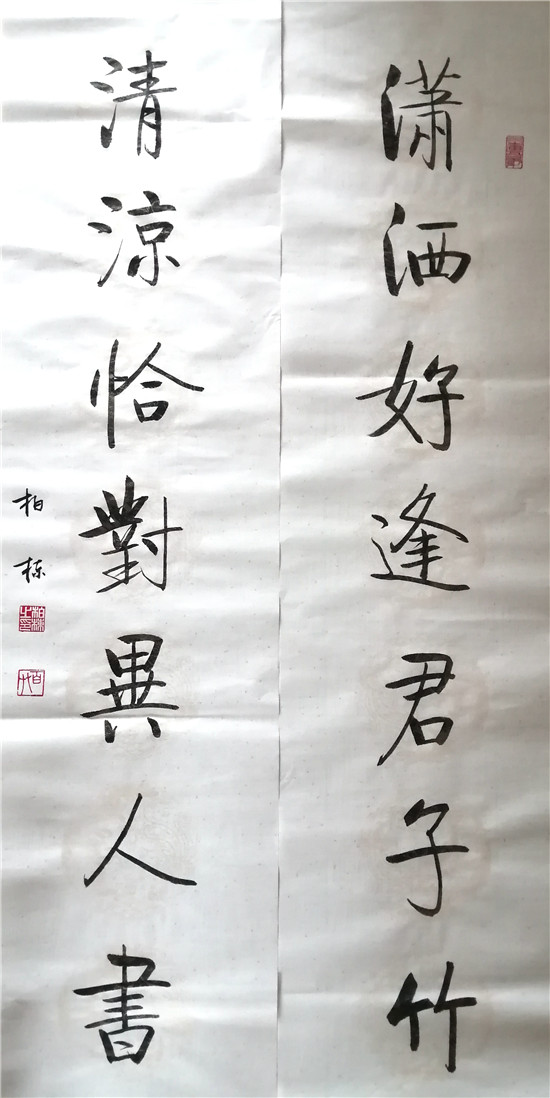 潇洒好逢君子竹
清凉恰對異人書
柏栋